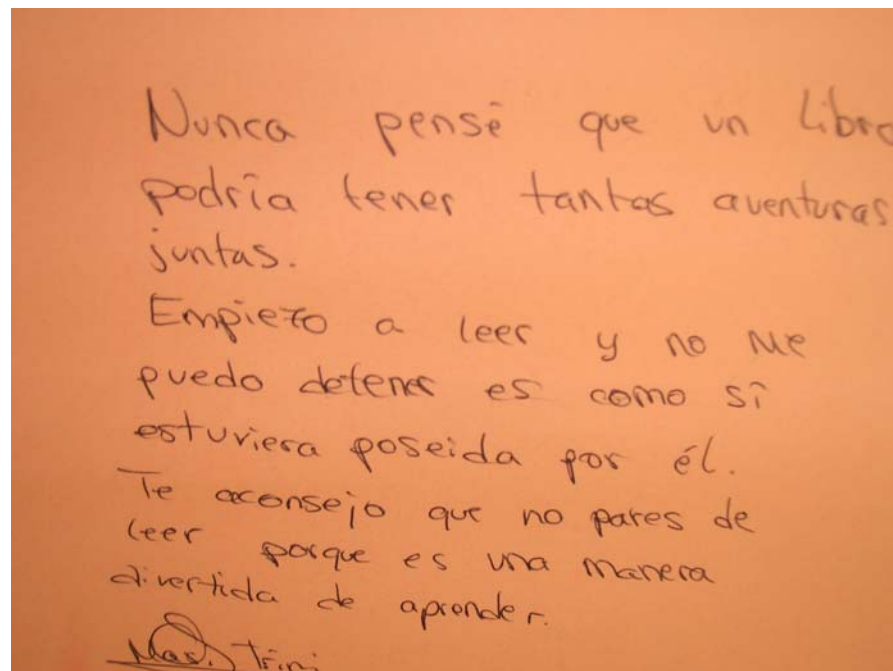 Nunca pensé que un libro
podría tener tantas aventuras
juntas.
Empiezo a leer y no me
puedo detener es como si
estuviera poseida por él.
Te aconsejo que no pares de
leer porque es una manera
divertida de aprender.
Trini